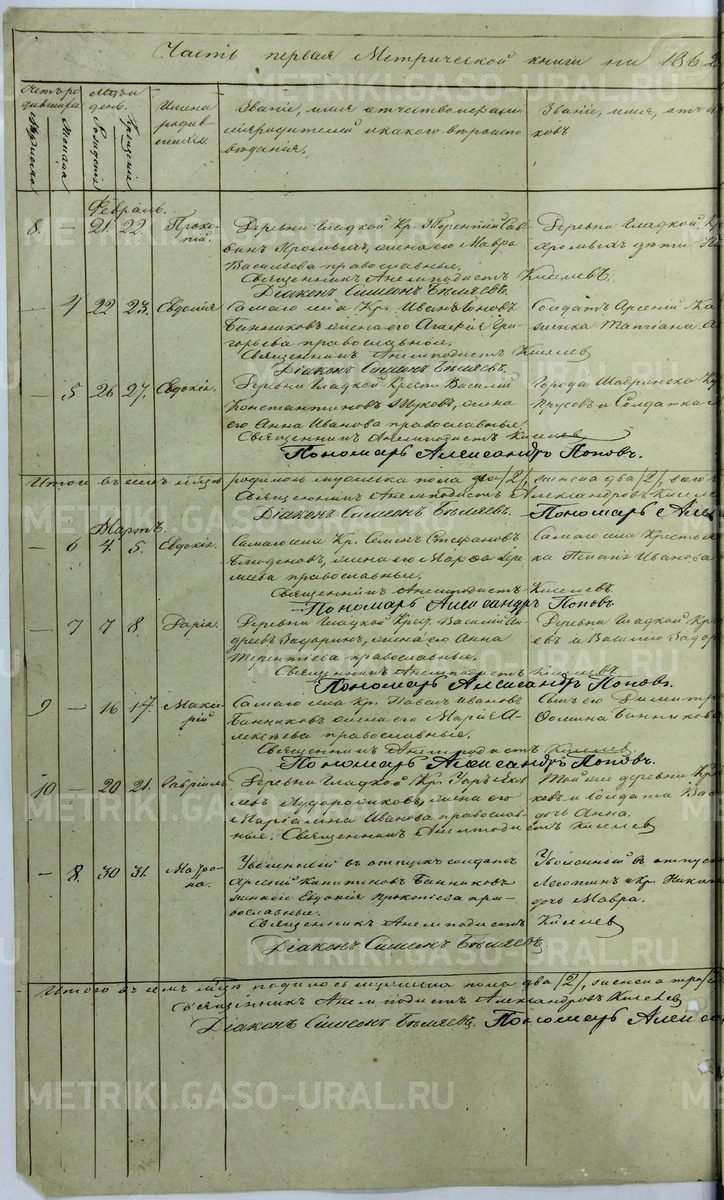 Часть первая Метрической книги на 1862
Мужеска
Женска
Рожденія
Крещенія
Имена родив-
шихся.
Званіе, имя, отчество
родителей и какого вѣроиспо-
вѣданія.
Званіе, имя, отч
Февраль.
8. — 21. 22. Проко-
пій.
Деревни Гладкой Кр. Терентій Сав-
винъ Хромыхъ, жена его Мавра
Васильева православные.
Священникъ Анемподистъ Киселевъ.
Діаконъ Симеонъ Бѣляевъ.
Деревни Гладкой Кр
Хромыхъ дѣти
— 4 22 23. Евдокія
Самаго села Кр. Иванъ
Банниковъ жена его Агафія Гри-
горьева православные.
Священникъ Анемподистъ Киселев
Діаконъ Симеонъ Бѣляевъ.
Солдатъ Арсеній
Татіана
— 5 26 27. Евдокія.
Деревни Гладкой Крест. Василій
Константиновъ Жуковъ, жена
его Анна Иванова православные.
Священникъ Анемподистъ Киселев
Пономарь Александръ Поповъ.
Города Шадринска Кр
и Солдатка
Итого въ семъ м-цѣ родилось мужеска пола два /2/, женска два /2/, всего
Священникъ Анемподистъ Александровъ Киселе
Діаконъ Симеонъ Бѣляевъ. Пономарь Алек
Мартъ.
— 6 4. 5. Евдокія.
Самаго села Кр. Семенъ Стефановъ
жена его Марѳа Ере-
меева православные.
Священникъ Анемподистъ Киселевъ
Пономарь Александръ Поповъ
Самаго села Крестья
ка Иванова
— 7 7 8 Дарія.
Деревни Гладкой Крест. Василій Ан-
древъ Задоринъ, жена его Анна
Терентіева православные.
Священникъ Анемподистъ Киселевъ
Пономарь Александръ Поповъ.
Деревни Гладкой Кре
евъ и Василій Задор
9 — 16 17. Мака-
рій
Самаго села Кр. Павелъ Ивановъ
Банниковъ жена его Марія А-
лексѣева православные.
Священникъ Анемподистъ Киселев
Пономарь Александръ Поповъ.
Сынъ его Димитр
Ѳомина Банникова
10 — 20 21. Гавріилъ
Деревни Гладкой Кр.
жена его
Иванова православ-
ные. Священникъ Анемподистъ Киселев
Той же деревни Кре
ковъ и Солдата Вас
дочь Анна.
— 8. 30 31. Матро-
на.
Уволенный въ отпускъ солдатъ
Арсеній Банниковъ
жена его Евдокія Прокопіева пра-
вославные.
Священникъ Анемподистъ Киселев
Діаконъ Симеонъ Бѣляевъ.
Уволенный в отпус
и Кр. Никит
дочь Мавра.
Итого въ семъ м-цѣ родилось мужеска пола два /2/, женска три /3/
Священникъ Анемподистъ Александровъ Киселев
Діаконъ Симеонъ Бѣляевъ. Пономарь Алек
METRIKI.GASO-URAL.RU